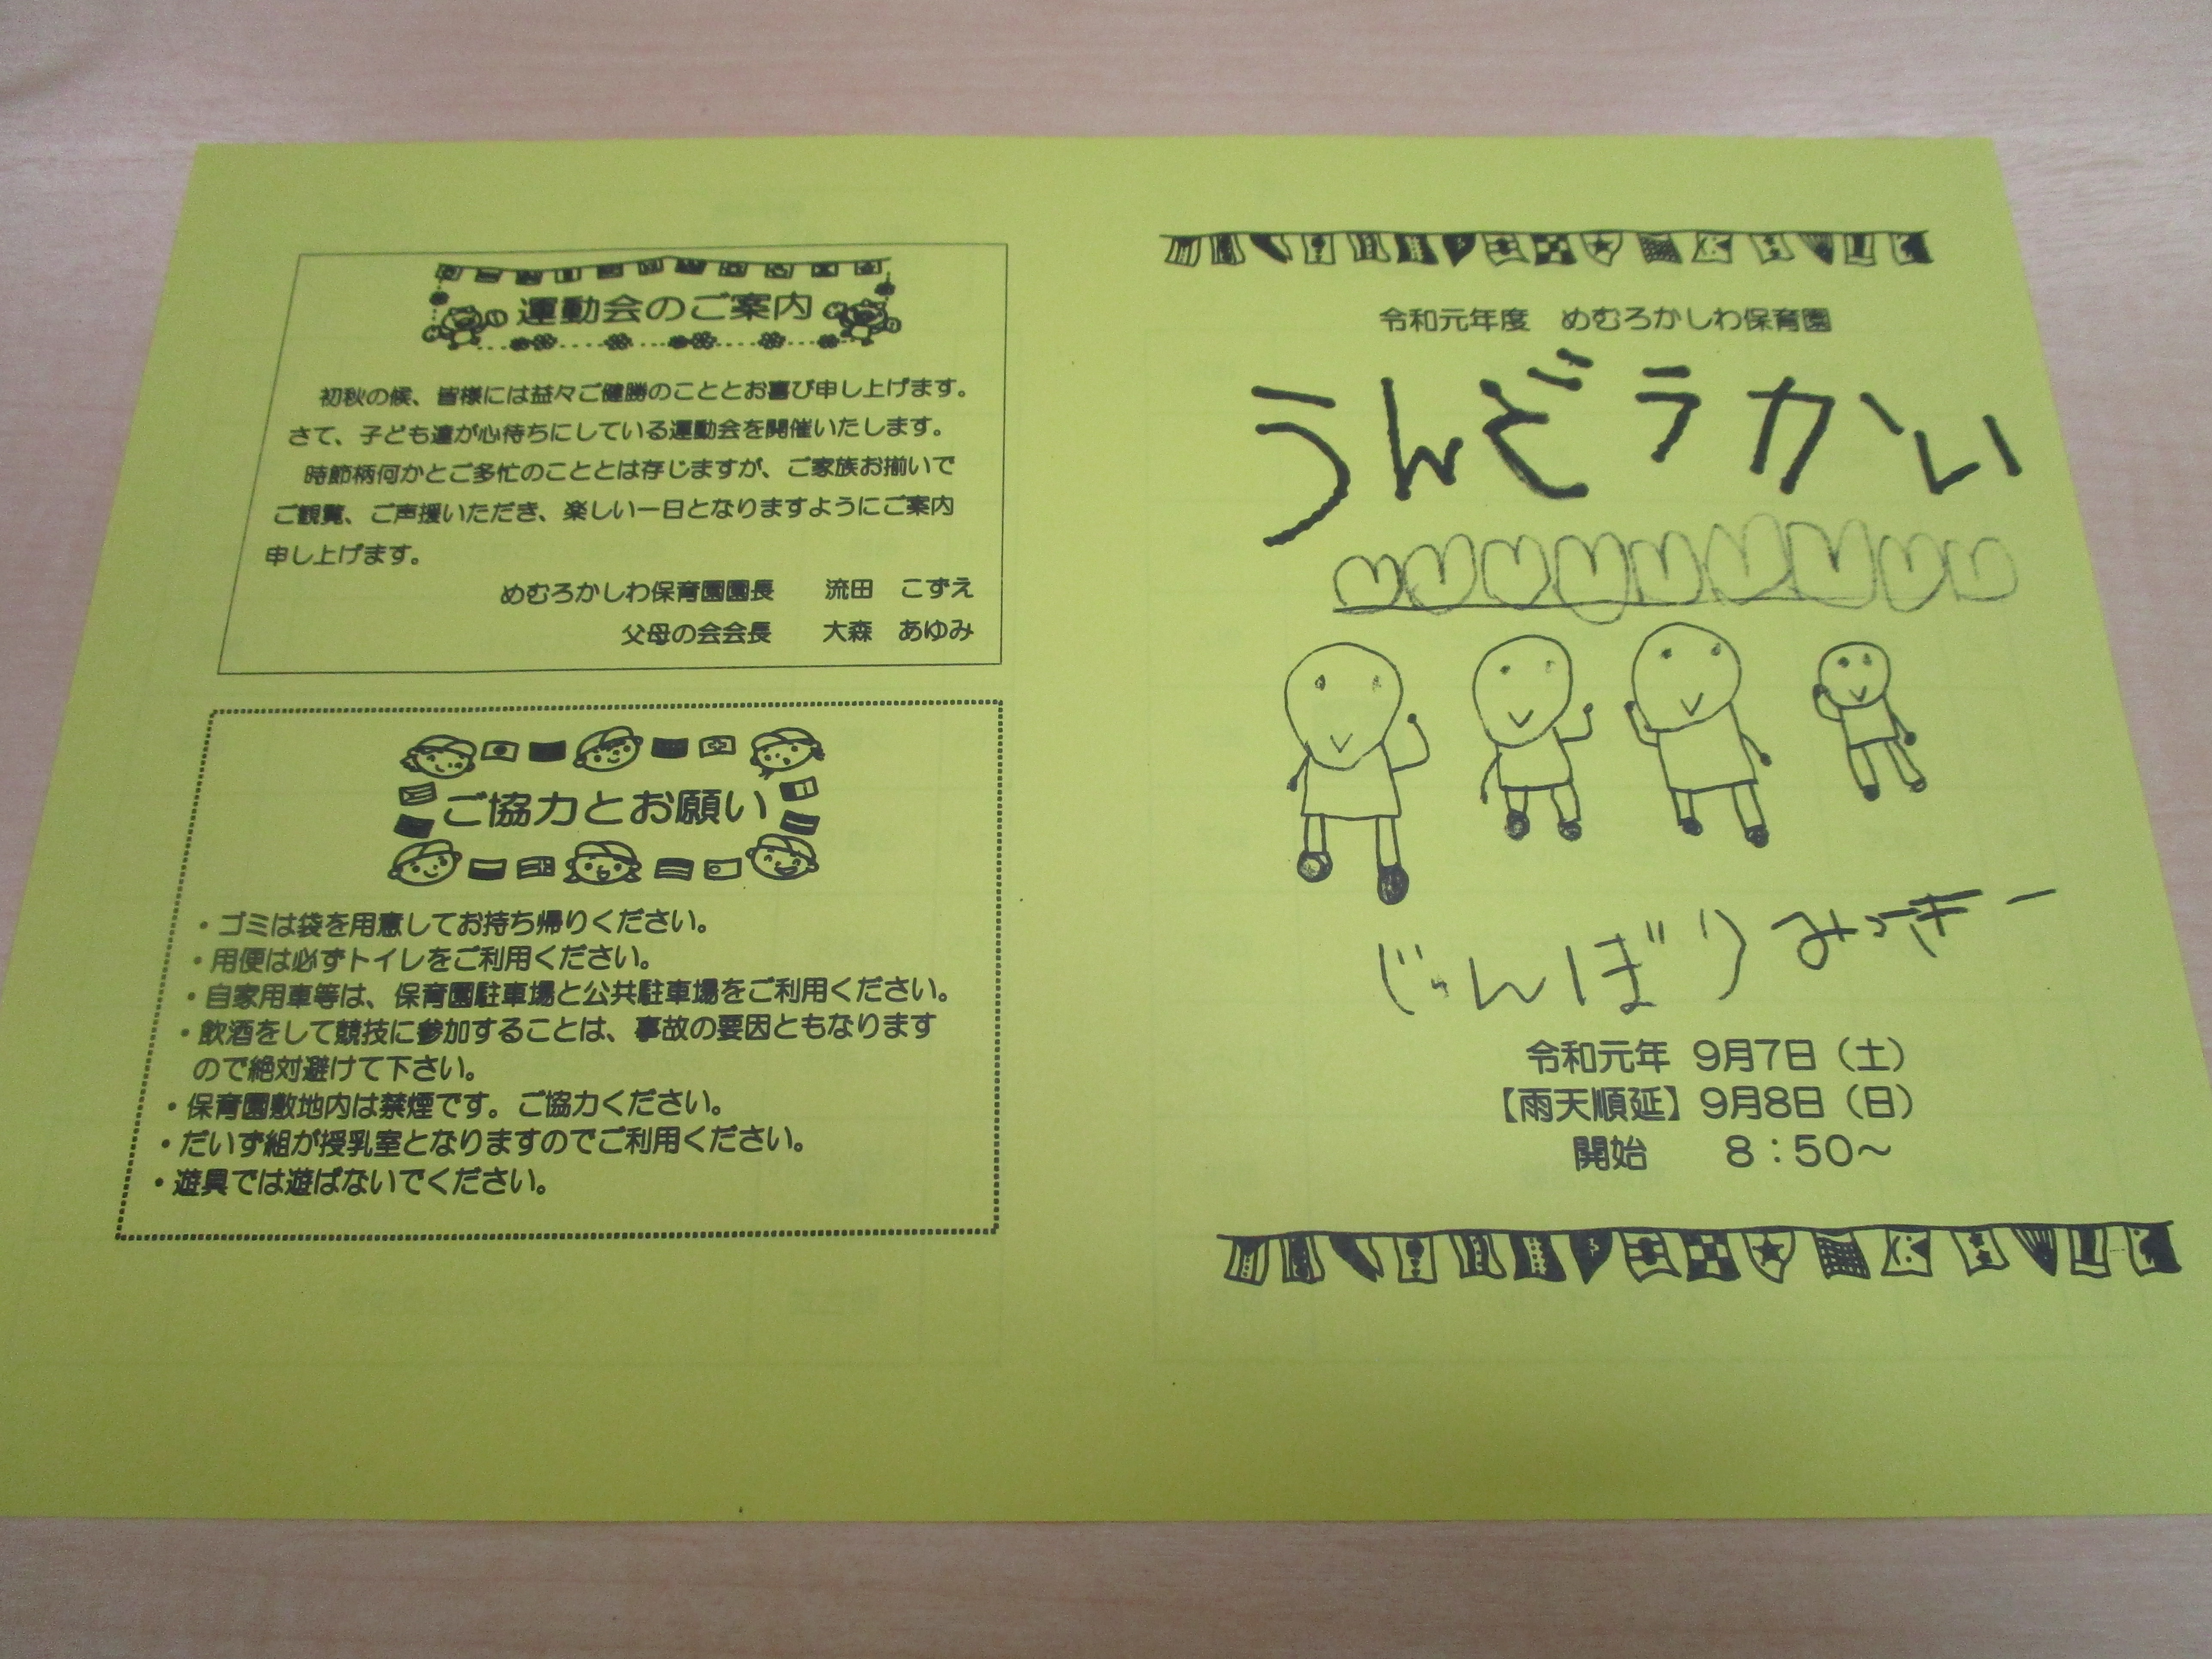 運動会のご案内
初秋の候、皆様には益々ご健勝のこととお喜び申し上げます。
さて、子ども達が心待ちにしている運動会を開催いたします。
時節柄何かとご多忙のこととは存じますが、ご家族お揃いで
ご観覧、ご声援いただき、楽しい一日となりますようにご案内
申し上げます。
めむろかしわ保育園園長　流田　こずえ
父母の会会長　大森　あゆみ
ご協力とお願い
・ゴミは袋を用意してお持ち帰りください。
・用便は必ずトイレをご利用ください。
・自家用車等は、保育園駐車場と公共駐車場をご利用ください。
・飲酒をして競技に参加することは、事故の要因ともなります
ので絶対避けて下さい。
・保育園敷地内は禁煙です。ご協力ください。
・だいず組が授乳室となりますのでご利用ください。
・遊具では遊ばないでください。
令和元年度　めむろかしわ保育園
うんどうかい
じゅんばりみっきー
令和元年 9月7日（土）
【雨天順延】9月8日（日）
開始　8：50～